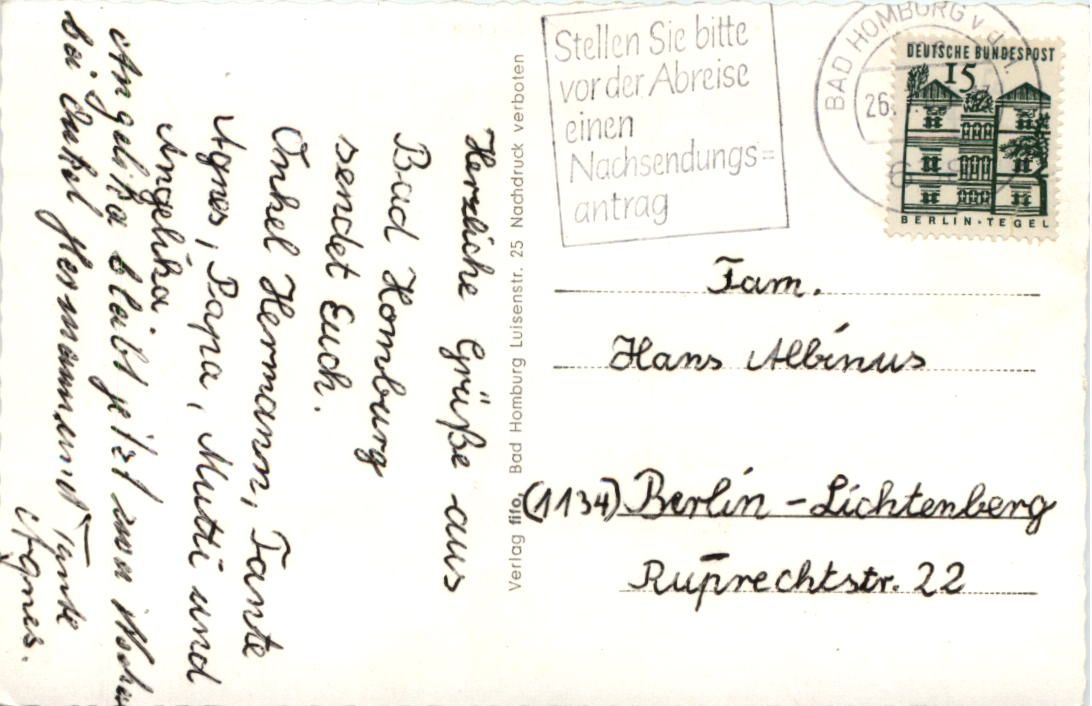 Herzliche Grüße aus
Bad Homburg
sendet Euch.
Onkel Hermann, Tante
Agnes, Papa, Mutti und
Angelika.
Angelika bleibt jetzt zwei Wochen
bei Onkel Hermann und Tante
Agnes.
Verlag fifo, Bad Homburg Luisenstr. 25 Nachdruck verboten
Stellen Sie bitte
vor der Abreise
einen
Nachsendungs=
antrag
BAD HOMBURG v.d.H.
26.
DEUTSCHE BUNDESPOST
15
BERLIN-TEGEL
Fam.
Hans Albinus
(1134) Berlin - Lichtenberg
Ruprechtstr. 22